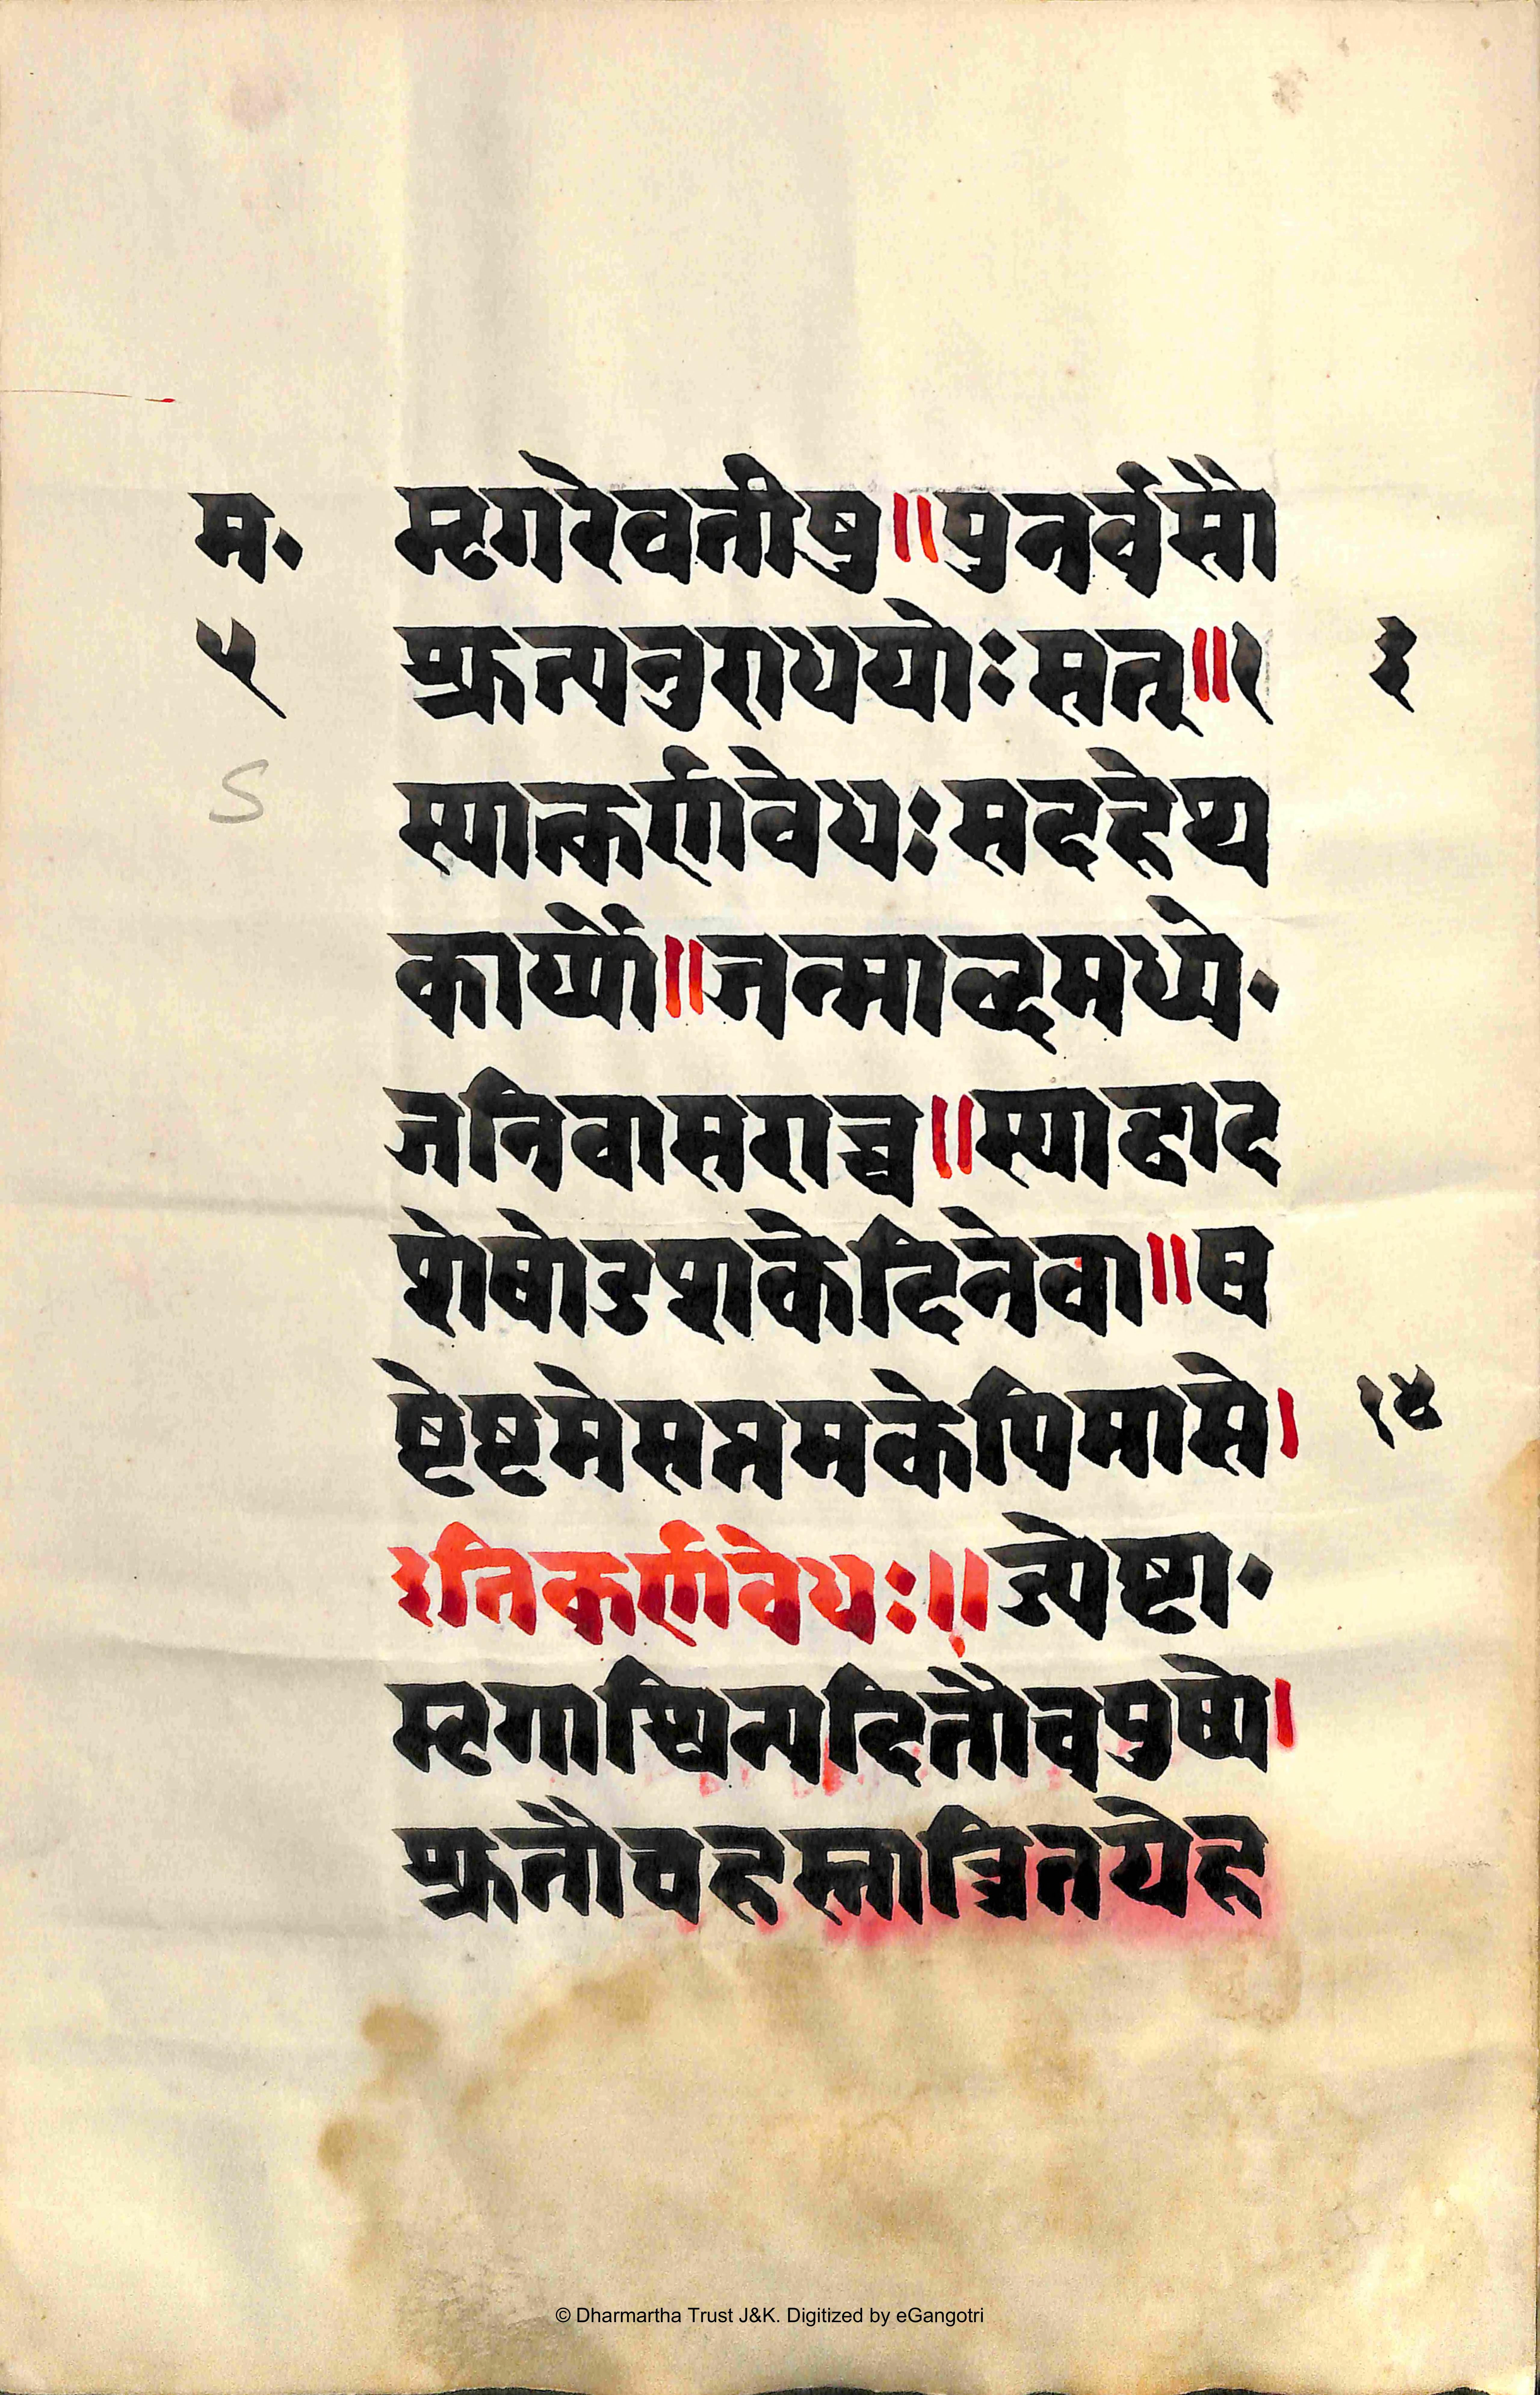 म॰ मृगरेवतीषु॥पुनर्वसौ
५ श्रुत्यनुराधयोःसत्॥१ ३
S स्यात्कर्णवेधःसदहेष्य
कार्य्यो॥जन्माब्दमध्ये॰
जनिवासराच्च॥स्याद्वाद
शेषोडशकेदिनेवा॥ष
ष्टेष्टमेसप्तमकेपिमासे। १४
इतिकर्णवेधः॥ज्येष्टा॰
मृगाश्विन्यदितौचपुष्ये।
श्रुतौचहस्तात्रितयेह
© Dharmartha Trust J&K. Digitized by eGangotri